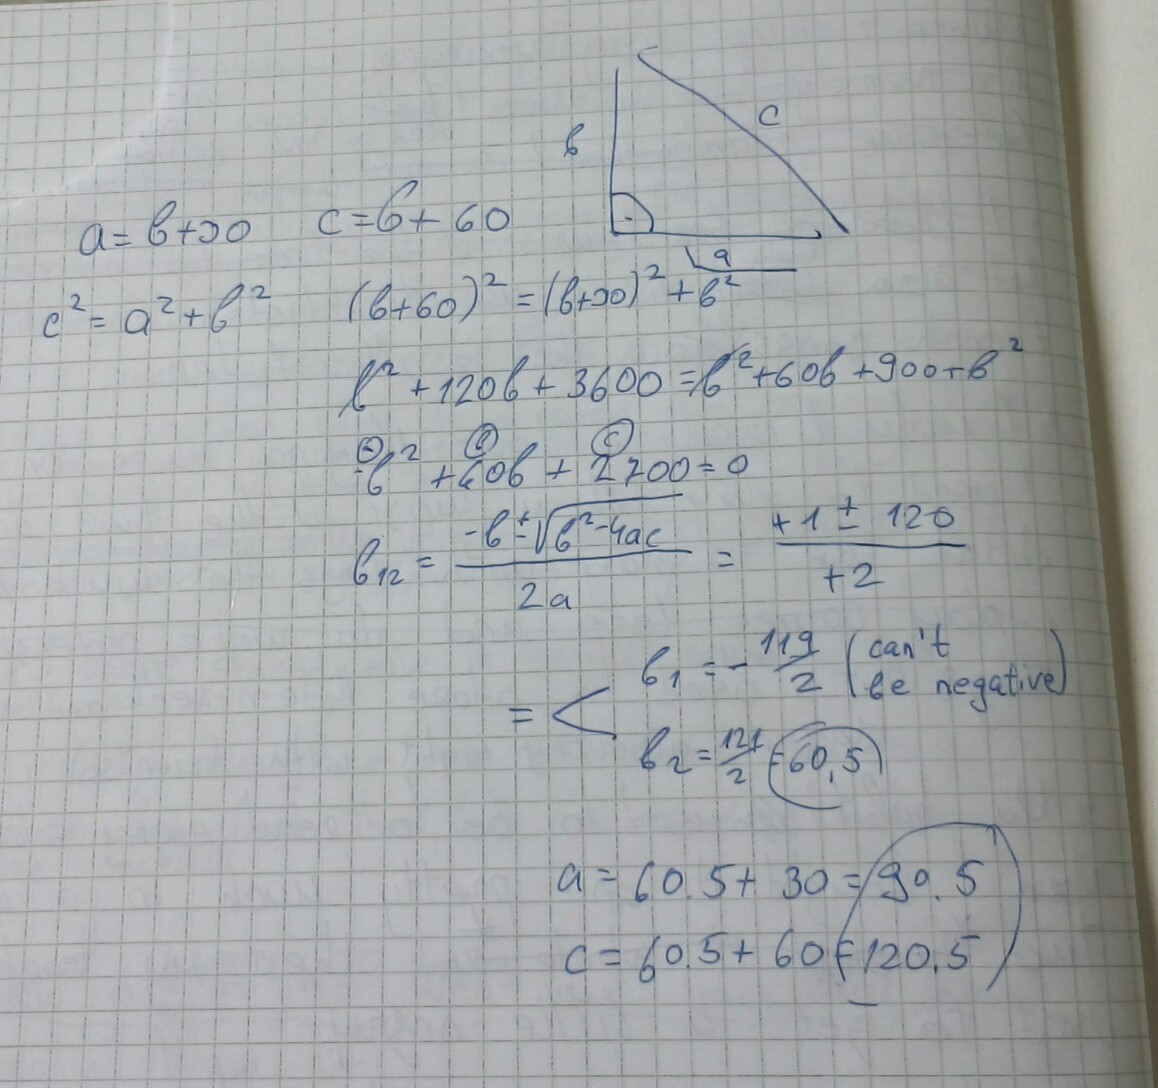 b
c
a
a = b+30 c = b+60
c² = a² + b² (b+60)² = (b+30)² + b²
b² + 120b + 3600 = b² + 60b + 900 + b²
a b c
-b² + 60b + 2700 = 0
b₁₂ = (-b ± √(b²-4ac)) / 2a = (+1 ± 120) / +2
= < b₁ = -119/2 (can't be negative)
b₂ = 121/2 = 60,5
a = 60.5 + 30 = 90.5
c = 60.5 + 60 = 120.5